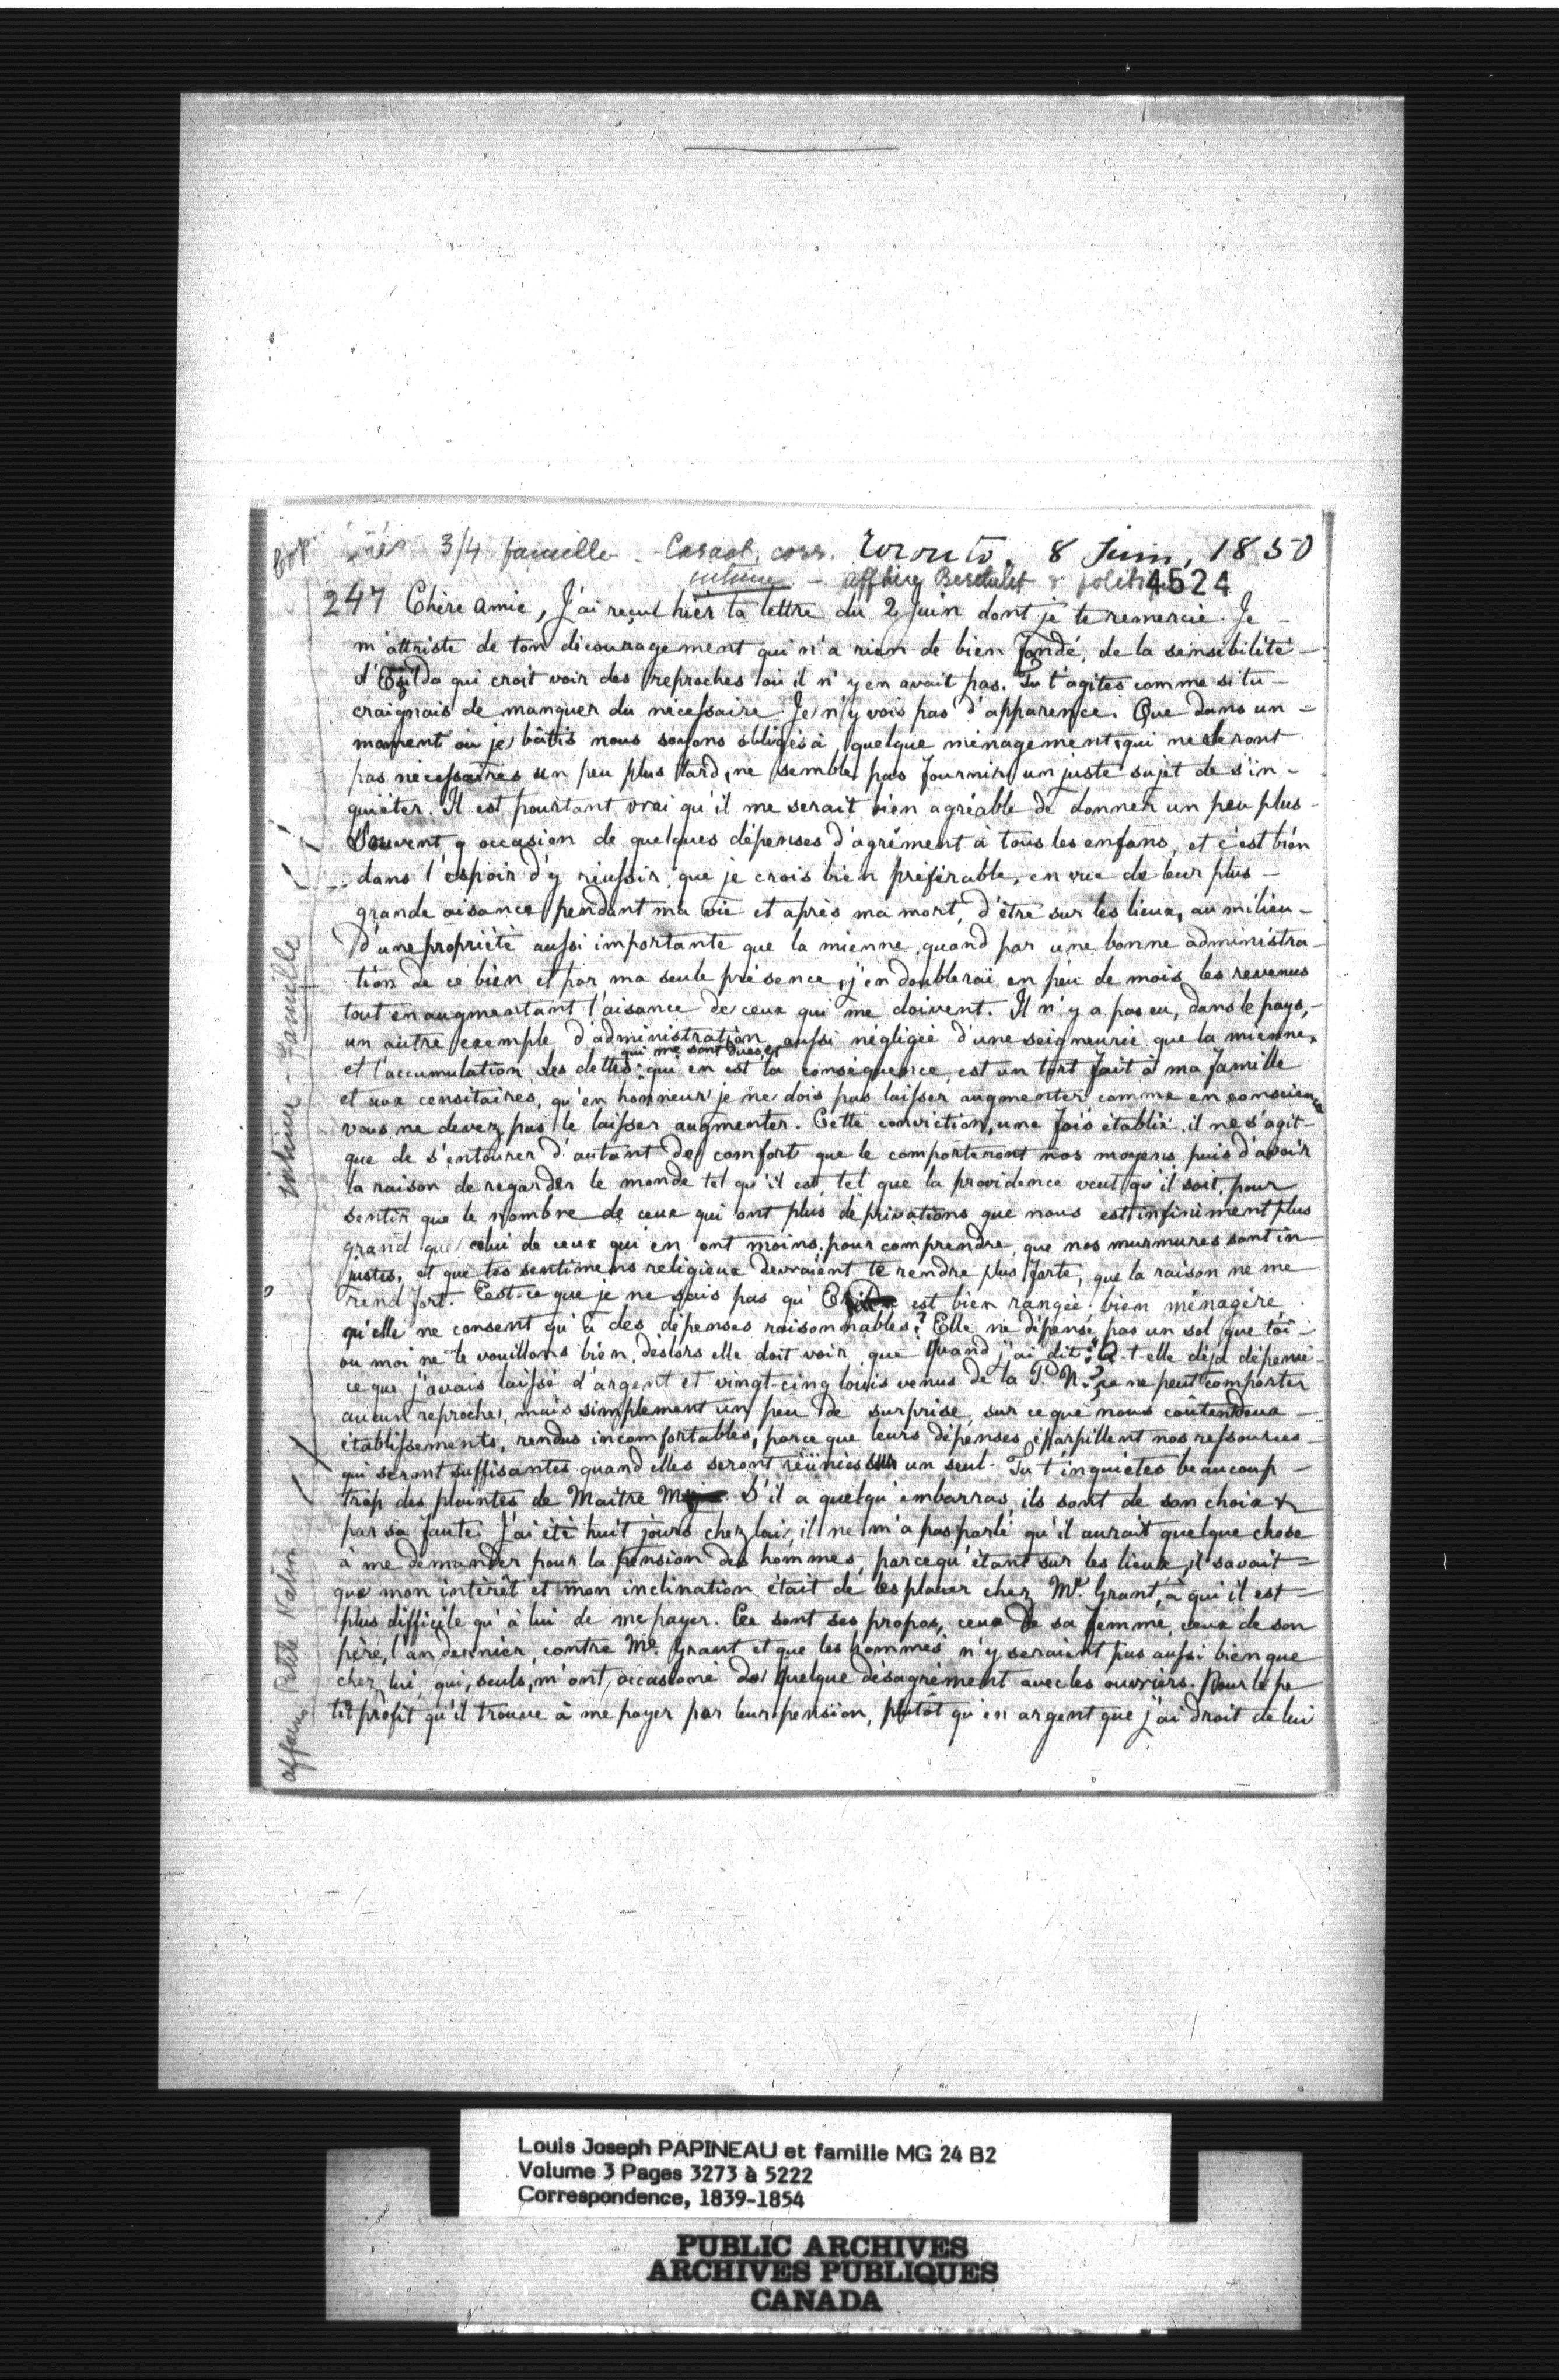 3/4 famille - Casaot, corr. Toronto, 8 Juin, 1850
intime - affaires & 4524
247 Chère amie, J'ai reçu hier ta lettre du 2 Juin dont je te remercie. Je -
m'attriste de ton découragement qui n'a rien de bien fondé, de la sensibilité -
d'Ezilda qui croit voir des reproches où il n'y en avait pas. Tu t'agites comme si tu -
craignais de manquer du nécessaire. Je n'y vois pas d'apparence. Que dans un -
moment où je bâtis nous soyons obligés à quelque ménagement, qui ne seront
pas nécessaires un peu plus tard, ne semble pas fournir un juste sujet de s'in -
quiéter. Il est pourtant vrai qu'il me serait bien agréable de donner un peu plus -
Souvent, occasion de quelques dépenses d'agrément à tous les enfans, et c'est bien
dans l'espoir d'y réussir, que je crois bien préférable, en vue de leur plus -
grande aisance pendant ma vie et après ma mort, d'être sur les lieux, au milieu -
d'une propriété aussi importante que la mienne, quand par une bonne administra -
tion de ce bien et par ma seule présence, j'en doublerai en peu de mois, les revenus
tout en augmentant l'aisance de ceux qui me doivent. Il n'y a pas eu, dans le pays, -
un autre exemple d'administration aussi négligée d'une seigneurie que la mienne,
qui me sont dues, et
et l'accumulation des dettes qui en est la conséquence, est un tort fait à ma famille
et aux censitaires, qu'en honneur je ne dois pas laisser augmenter comme en conscience
vous ne devez pas le laisser augmenter. Cette conviction, une fois établie, il ne s'agit -
que de s'entourer d'autant de comfort que le comporteront nos moyens, puis d'avoir
la raison de regarder le monde tel qu'il est, tel que la providence veut qu'il soit, pour
sentir que le nombre de ceux qui ont plus de privations que nous est infiniment plus
grand que celui de ceux qui en ont moins, pour comprendre, que nos murmures sont in
justes, et que tes sentimens religieux devraient te rendre plus forte, que la raison ne me
rend fort. Est-ce que je ne sais pas qu' est bien rangée, bien ménagère,
qu'elle ne consent qu'à des dépenses raisonnables? Elle ne dépense pas un sol que toi -
ou moi ne le vouillons bien, dèslors elle doit voir que quand j'ai dit: "A-t-elle déjà dépensé -
ce que j'avais laissé d'argent et vingt-cinq louis venus de la P. N.?, ce ne peut comporter
aucun reproche, mais simplement un peu de surprise, sur ce que nous coûtent deux -
établissements, rendus incomfortables, parce que leurs dépenses éparpillent nos ressources -
qui seront suffisantes quand elles seront réunies sur un seul. Tu t'inquiètes beaucoup -
trop des plaintes de Maître S'il a quelqu'embarras, ils sont de son choix &
par sa faute. J'ai été huit jours chez lui, il ne m'a pas parlé qu'il aurait quelque chose
à me demander pour la pension des hommes, parcequ'étant sur les lieux, il savait -
que mon intérêt et mon inclination était de les placer chez Mr. Grant, à qui il est -
plus difficile qu'à lui de me payer. Ce sont ses propos, ceux de sa femme, ceux de son
père, l'an dernier, contre Mr. Grant et que les hommes n'y seraient pas aussi bien que
chez lui, qui, seuls, m'ont occasioné de quelque désagrément avec les ouvriers. Pour le pe
tit profit qu'il trouve à me payer par leur pension, plutôt qu'en argent que j'ai droit de lui
intime - Famille
affaires Petite Nation
Louis Joseph PAPINEAU et famille MG 24 B2
Volume 3 Pages 3273 à 5222
Correspondence, 1839-1854
PUBLIC ARCHIVES
ARCHIVES PUBLIQUES
CANADA